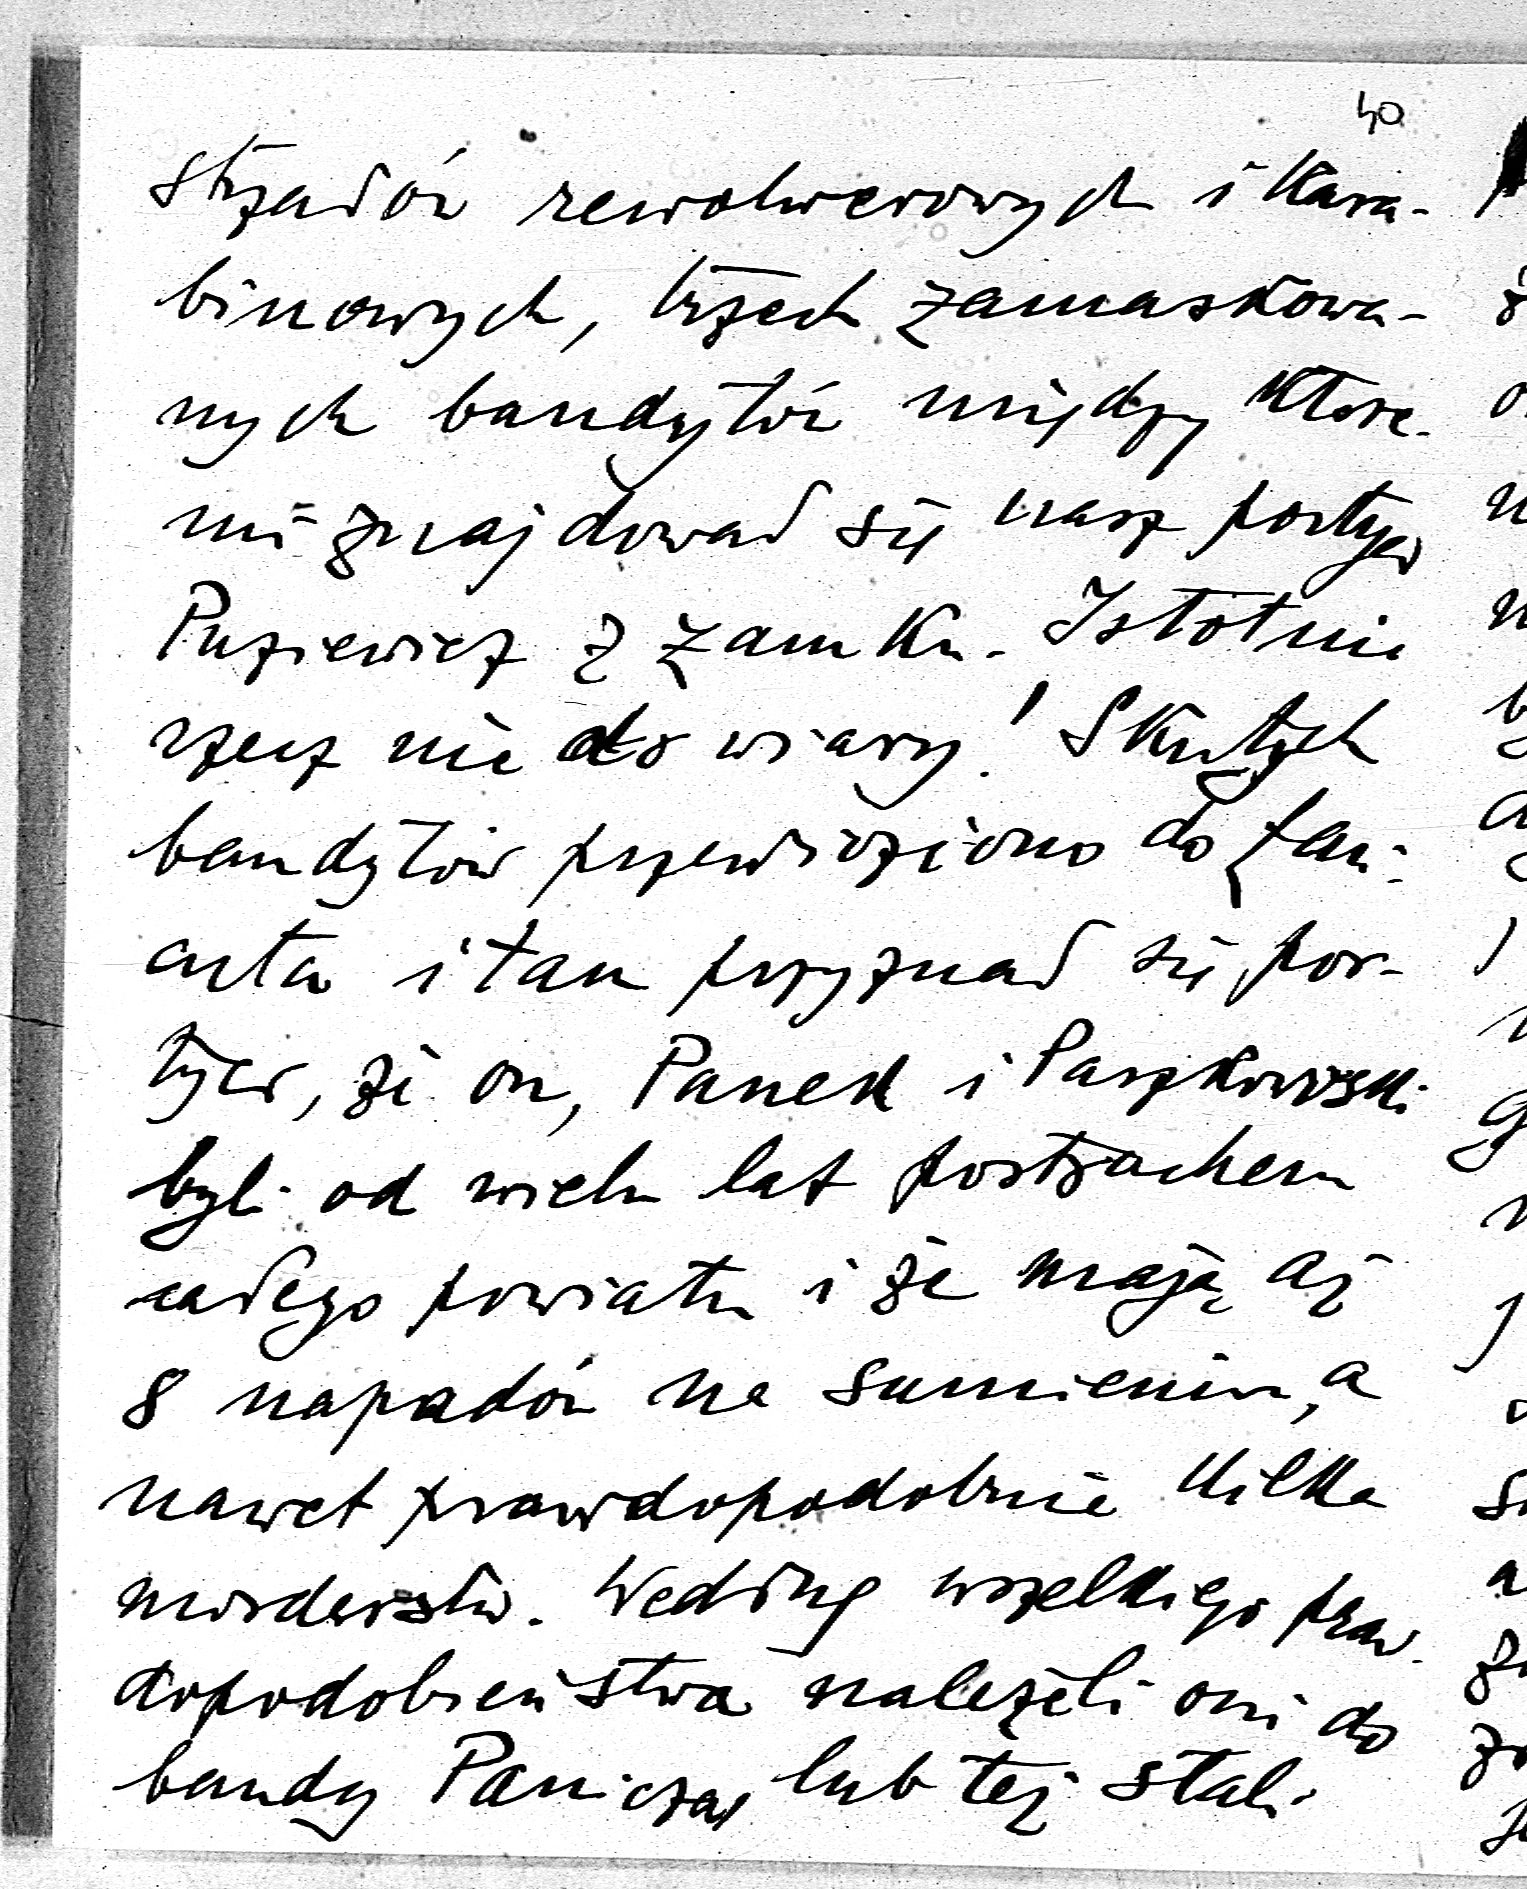 40
strzałów rewolwerowych i kara-
binowych, trzech zamaskowa-
nych bandytów między które-
mi znajdował się nasz portjer
Puziewicz z zamku. Istotnie
rzecz nie do wiary! Skutych
bandytów przewieziono do Łań-
cuta i tam przyznał się por-
tjer, że on, Panek i Paszkowski
byli od wielu lat postrachem
całego powiatu i że mają aż
8 napadów na sumieniu, a
nawet prawdopodobnie kilka
morderstw. Według wszelkiego praw-
dopodobieństwa należeli oni do
bandy Panicza, lub też stali